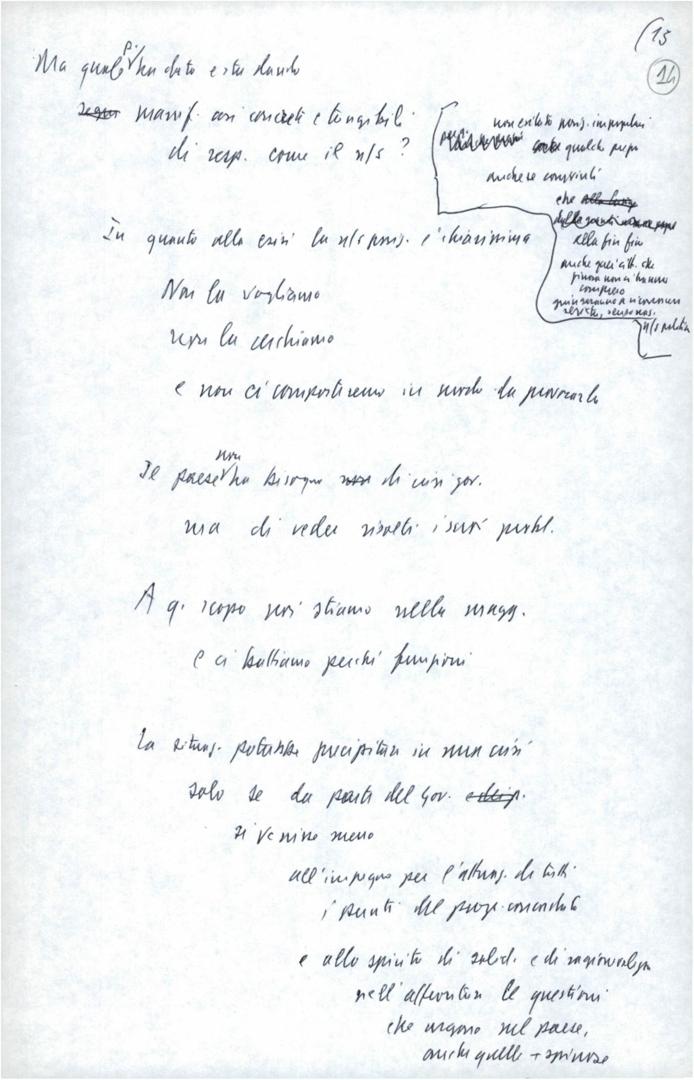 (13
14
Ma quale p. ha dato e sta dando
manif. così concreti e tangibili
di resp. come il n/s ?
non esitato porci. impopolari
qualche
anche se convinti
che
alla fin fin
anche quei citt. che
finora non ci hanno
compreso
n/s politica
In quanto alla crisi la n/s pos. è chiarissima
Non la vogliamo
non la cerchiamo
e non ci comporteremo in modo da provocarla
Il paese non ha bisogno di crisi gov.
ma di veder risolti i suoi probl.
A q. scopo noi stiamo nella magg.
e ci battiamo perché funzioni
La situaz. potrebbe precipitare in una crisi
solo se da parte del gov.
si venisse meno
all'impegno per l'attuaz. di tutti
i punti del progr. concordato
e allo spirito di solid. e di
nell'affrontare le questioni
che urgono nel paese,
anche quelle + spinose